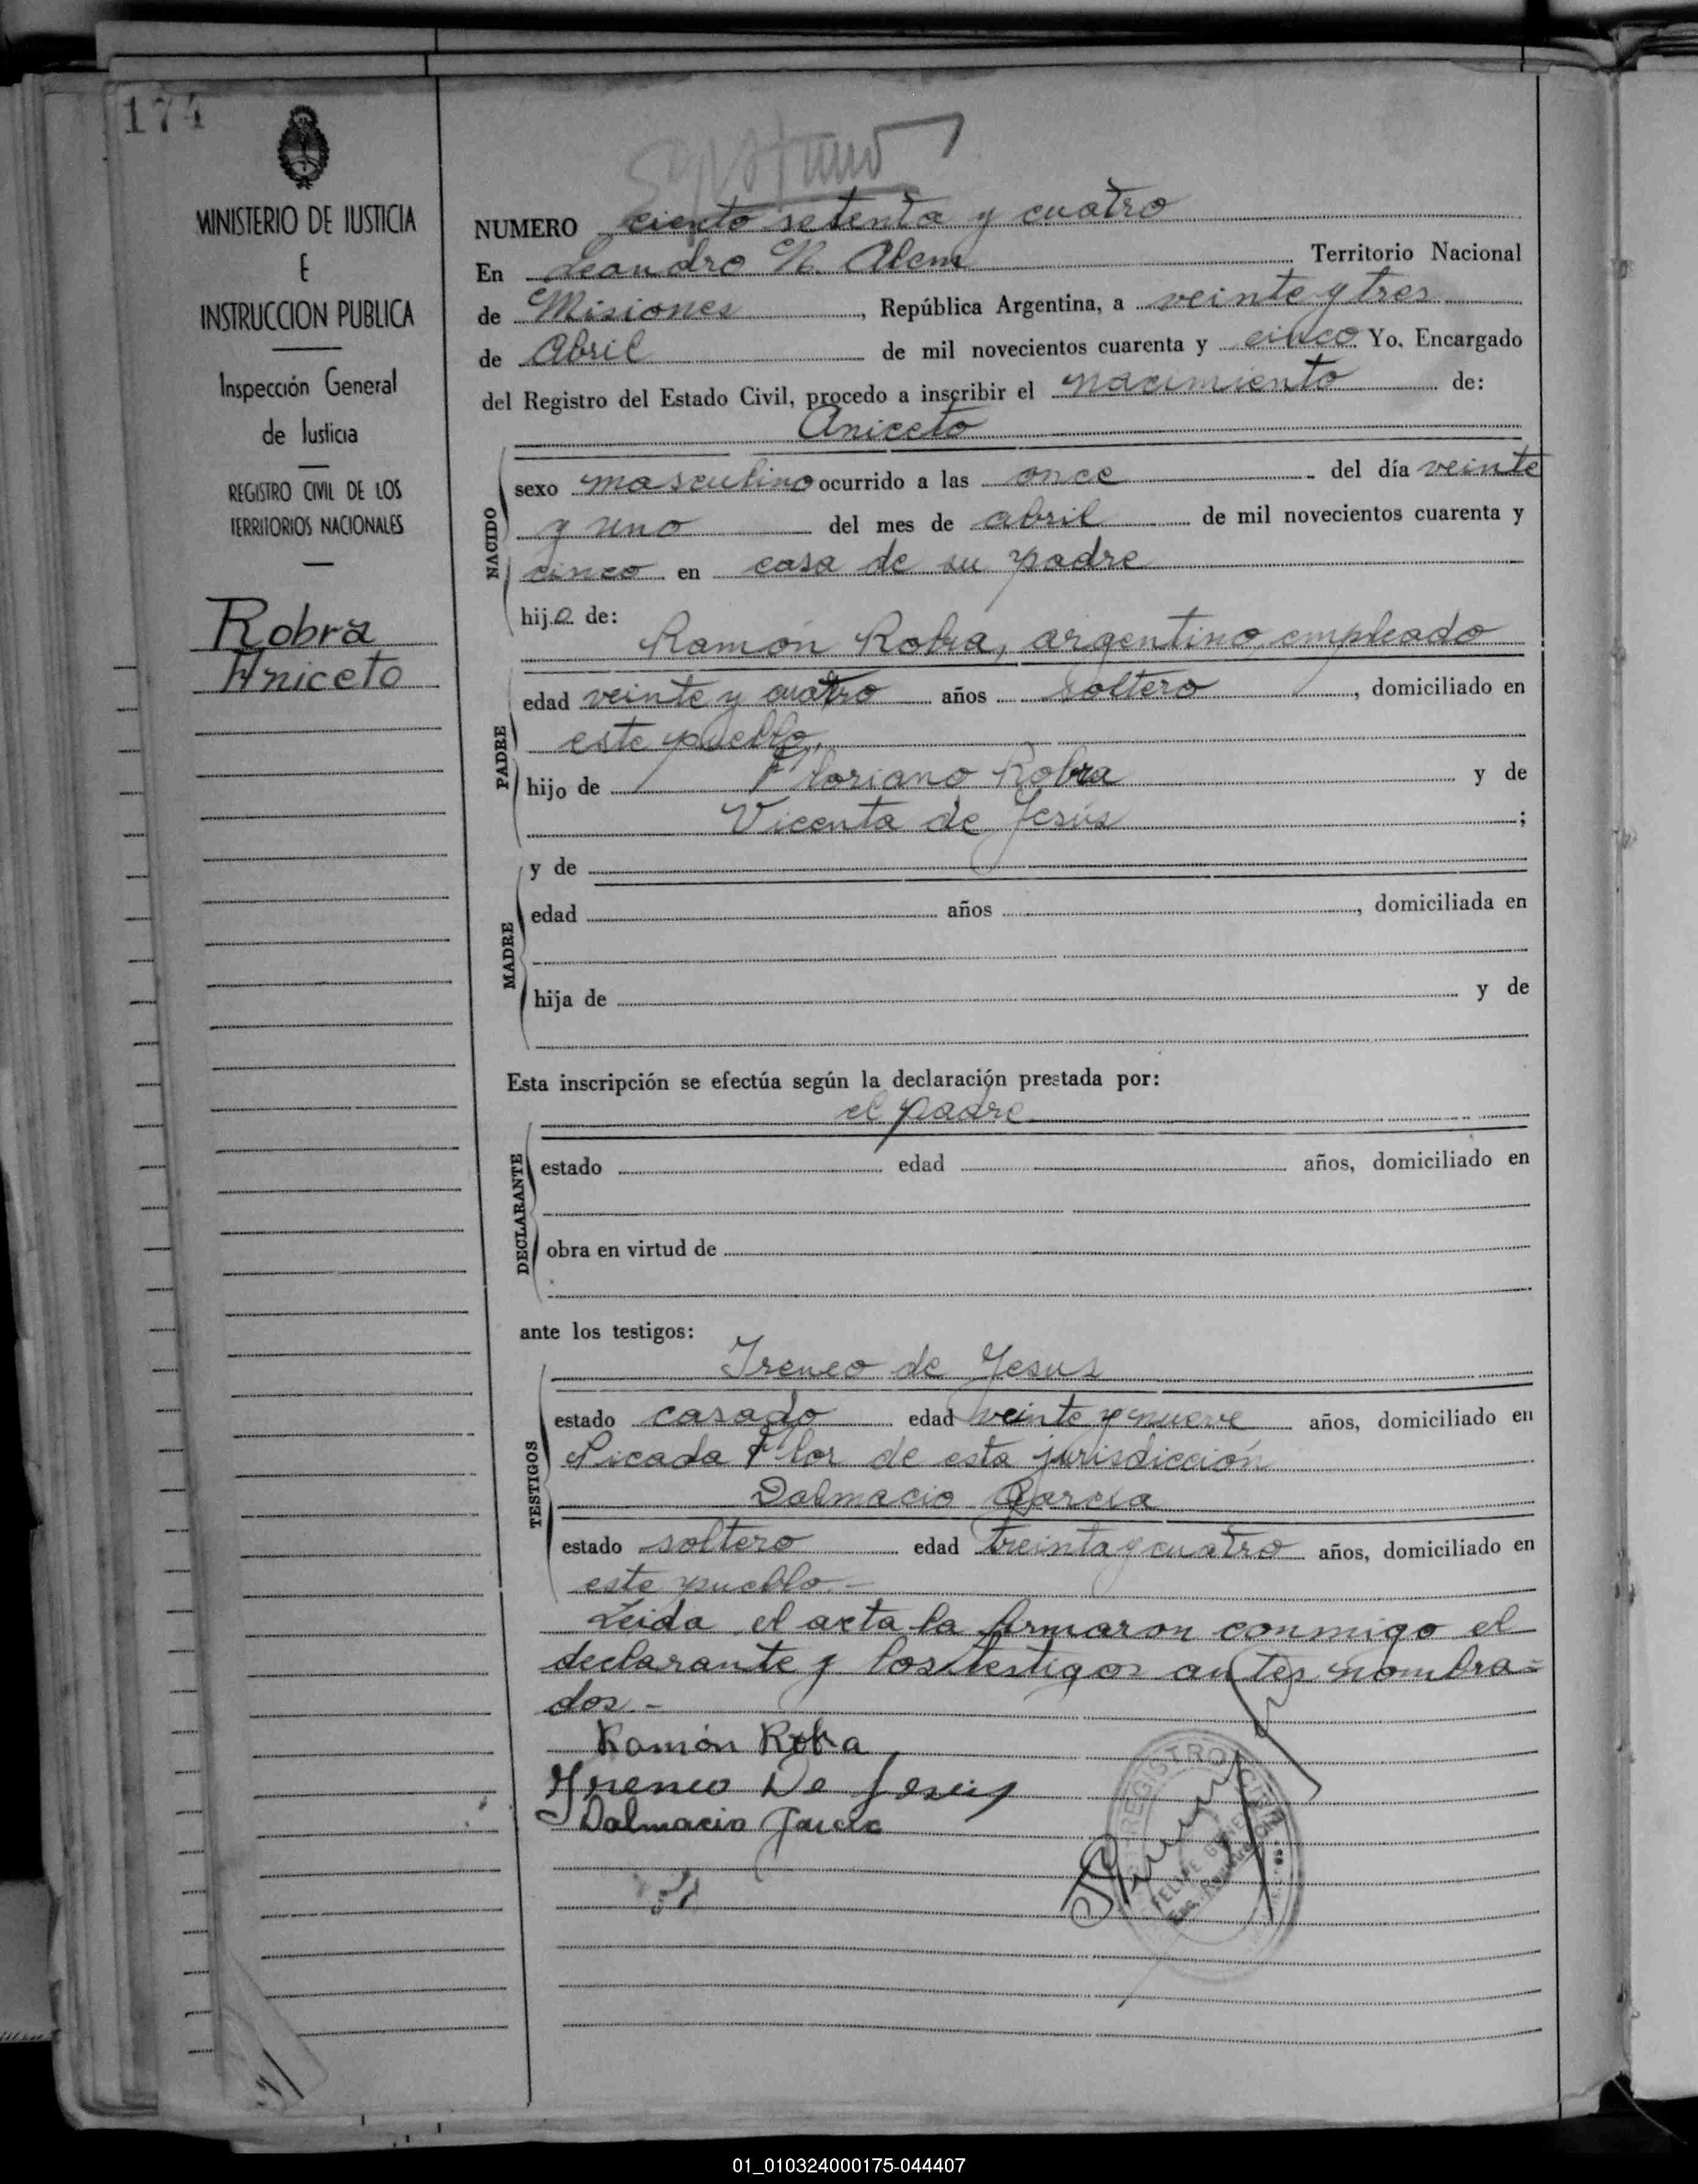 174
MINISTERIO DE JUSTICIA
E
INSTRUCCION PUBLICA
Inspección General
de Justicia
REGISTRO CIVIL DE LOS
TERRITORIOS NACIONALES
Robra
Aniceto
NUMERO ciento setenta y cuatro
En Leandro N. Alem Territorio Nacional
de Misiones, República Argentina, a veinte y tres
de Abril de mil novecientos cuarenta y cinco Yo, Encargado
del Registro del Estado Civil, procedo a inscribir el nacimiento de:
Aniceto
NACIDO
sexo masculino ocurrido a las once del día veinte
y uno del mes de abril de mil novecientos cuarenta y
cinco en casa de su padre
hijo de:
Ramón Robra, argentino, empleado
PADRE
edad veinte y cuatro años soltero, domiciliado en
este pueblo,
hijo de Floriano Robra y de
Vicenta de Jesús;
MADRE
y de
edad años, domiciliada en
hija de y de
Esta inscripción se efectúa según la declaración prestada por:
el padre
DECLARANTE
estado edad años, domiciliado en
obra en virtud de
ante los testigos:
Ireneo de Jesus
TESTIGOS
estado casado edad veinte y nueve años, domiciliado en
Picada Flor de esta jurisdicción
Dalmacio Garcia
estado soltero edad treinta y cuatro años, domiciliado en
este pueblo.-
Leida el acta la firmaron conmigo el
declarante y los testigos antes nombra=
dos.-
Ramón Robra
Ireneo De Jesús
Dalmacio Garcia
REGISTRO CIVIL
FELIPE
Enc. Registro Civil
01_010324000175-044407